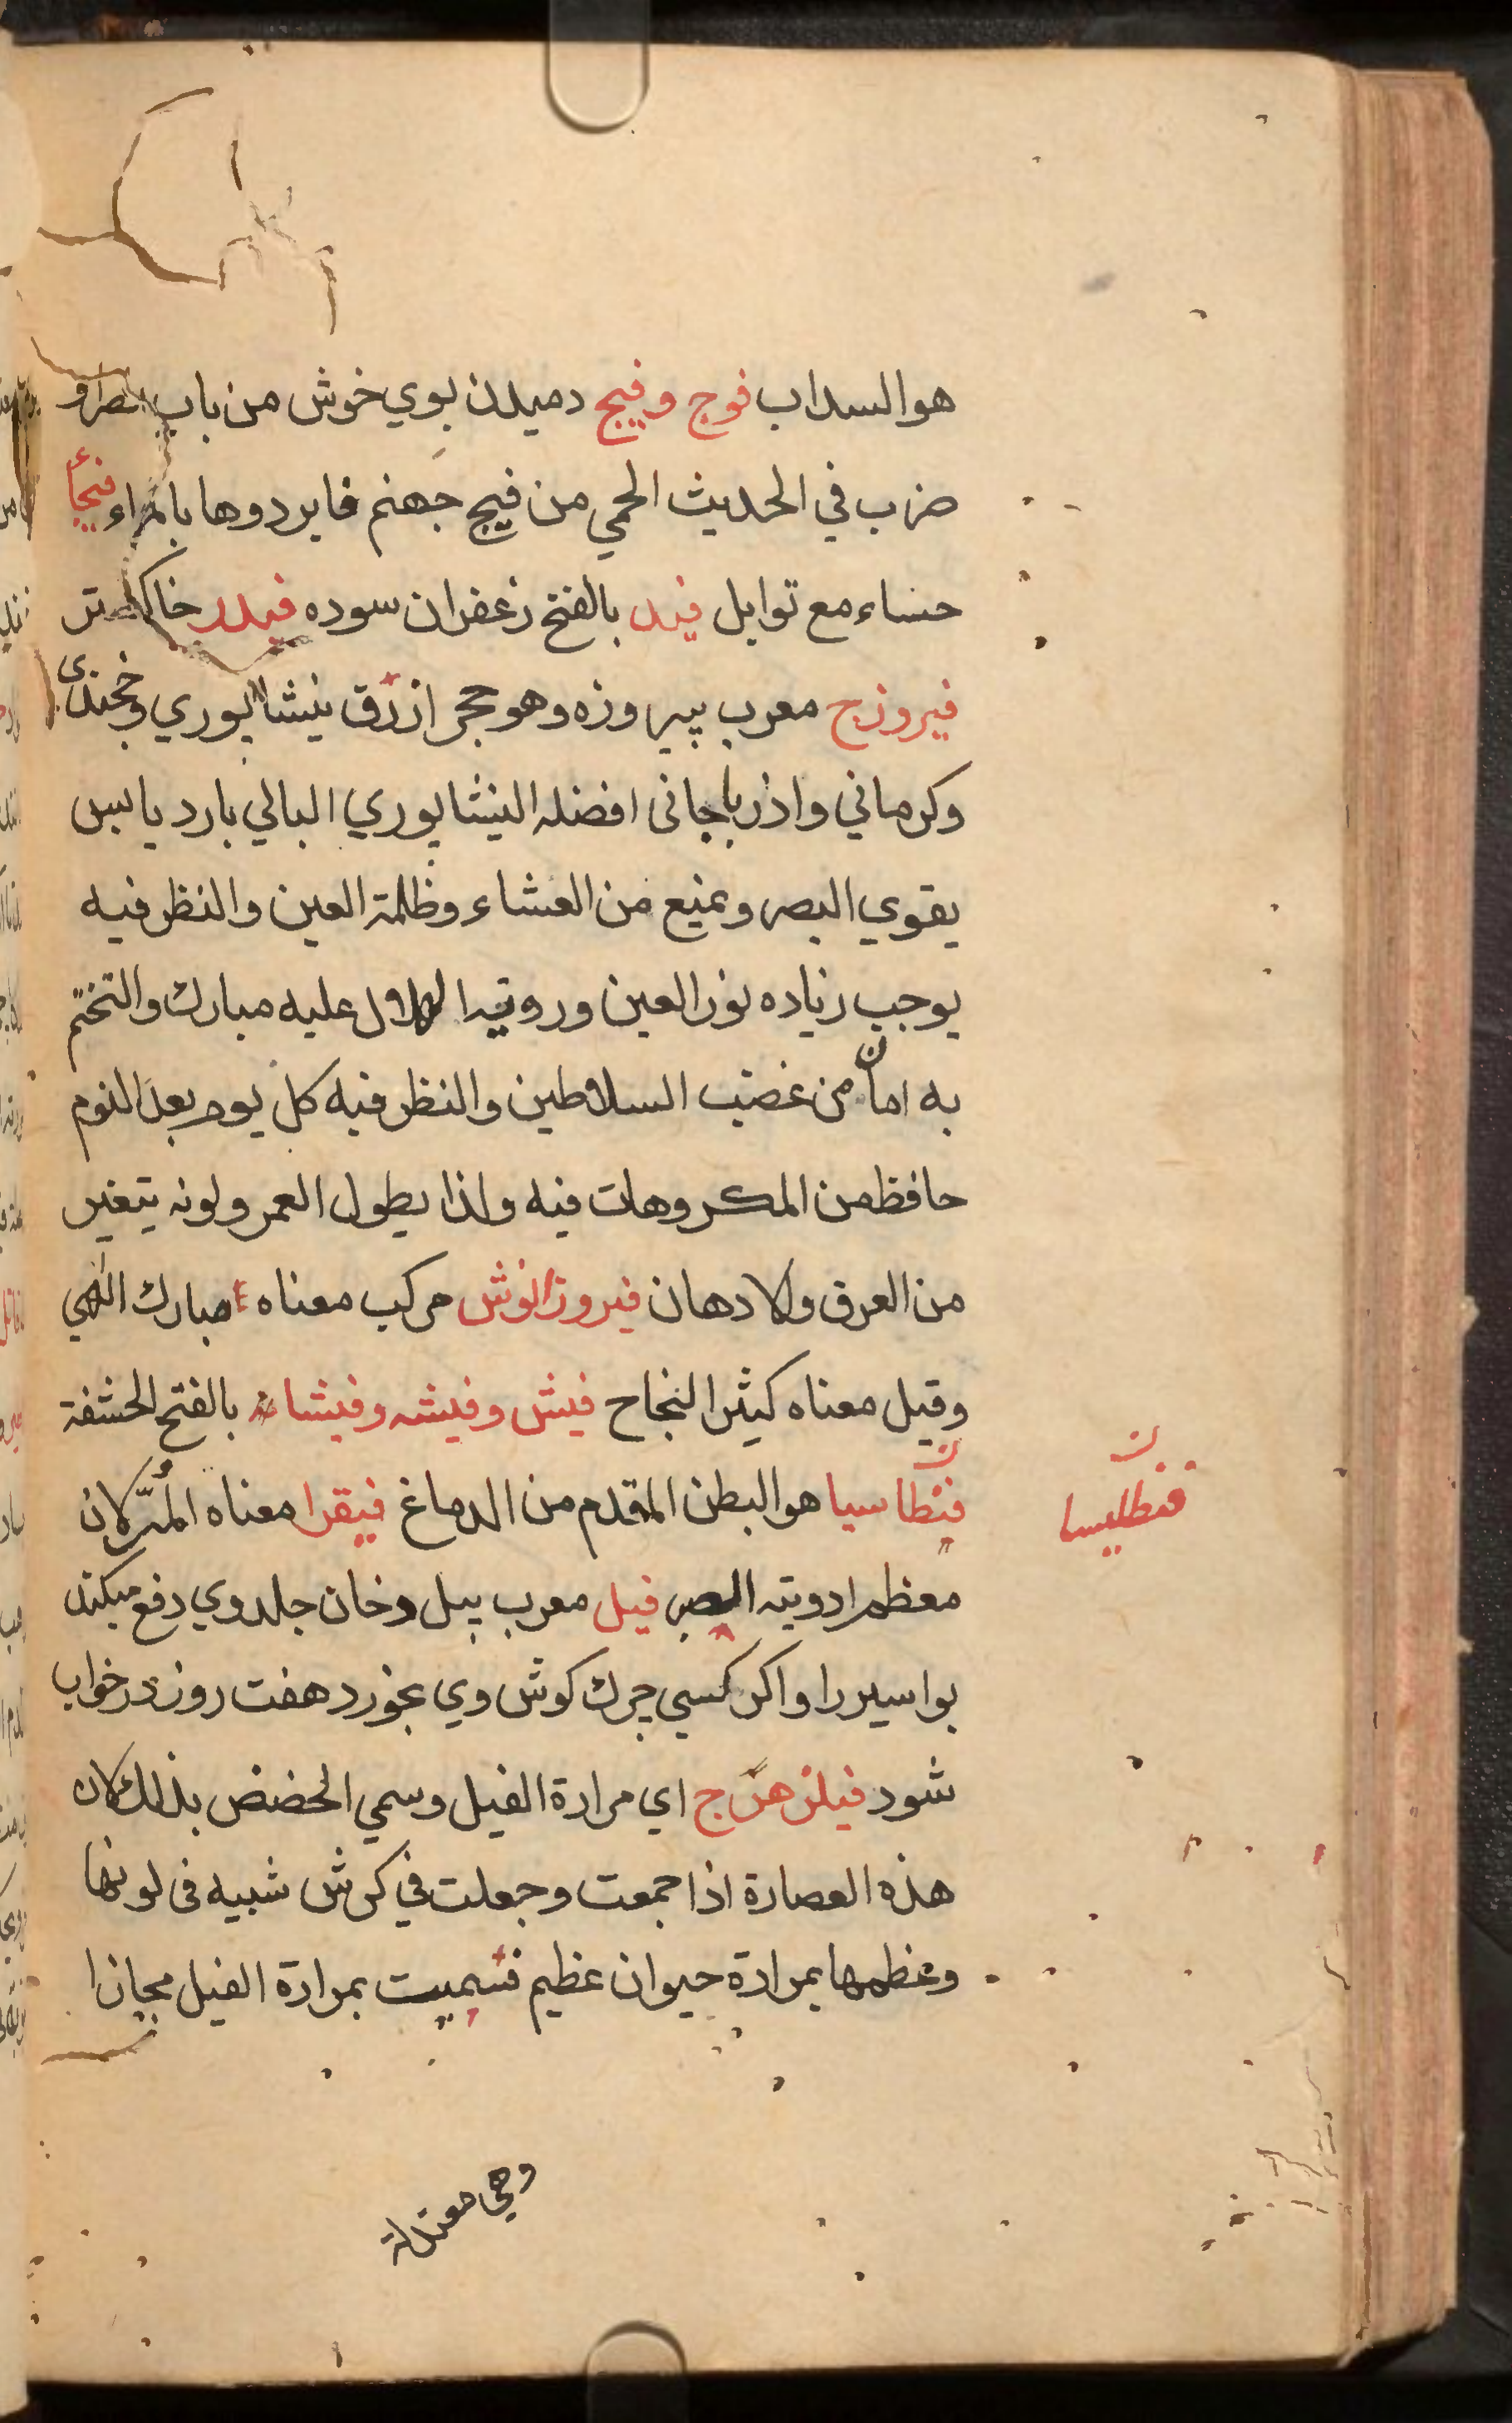 هو السداب فوج وفيج دميدن بوي خوش من باب نصر و
ضرب في الحديث الحمي من فيج جهنم فابردوها بالماء فيجأ
حساء مع توابل فيد بالفتح زعفران سوده فيلدر خاكستر
فيروزج معرب پيروزه وهو حجر ازرق نيشابوري وخجندى
وكرماني واذرباجانى افضله النيشابوري البالي بارد يابس
يقوي البصر ويمنع من العشاء وظلمة العين والنظر فيه
يوجب زياده نور العين ورويته الهلال عليه مبارك والتختّم
به امان من غضب السلاطين والنظر فيه كل يوم بعد النوم
حافظ من المكروهات فيه ولذا يطول العمر ولونه يتغير
من العرق والادهان فيروزانوش مركب معناه مبارك الهي
وقيل معناه كثير النجاح فيش وفيشه وفيشاء بالفتح الحشفة
فنطاسيا هو البطن المقدم من الدماغ فيقرا معناه المُرّ لان
معظم ادويته الصبر فيل معرب پيل دخان جلد وي دفع ميكند
بواسير را واكر كسي چرك كوش وي بخورد هفت روز در خواب
شود فيلزهرج اي مرارة الفيل وسمي الحضض بذلك لان
هذه العصارة اذا جمعت وجعلت في كرش شبيه فى لونها
وعظمها بمرارة حيوان عظيم فسميت بمرارة الفيل مجازا
فنطليسا
وهي معتدلة